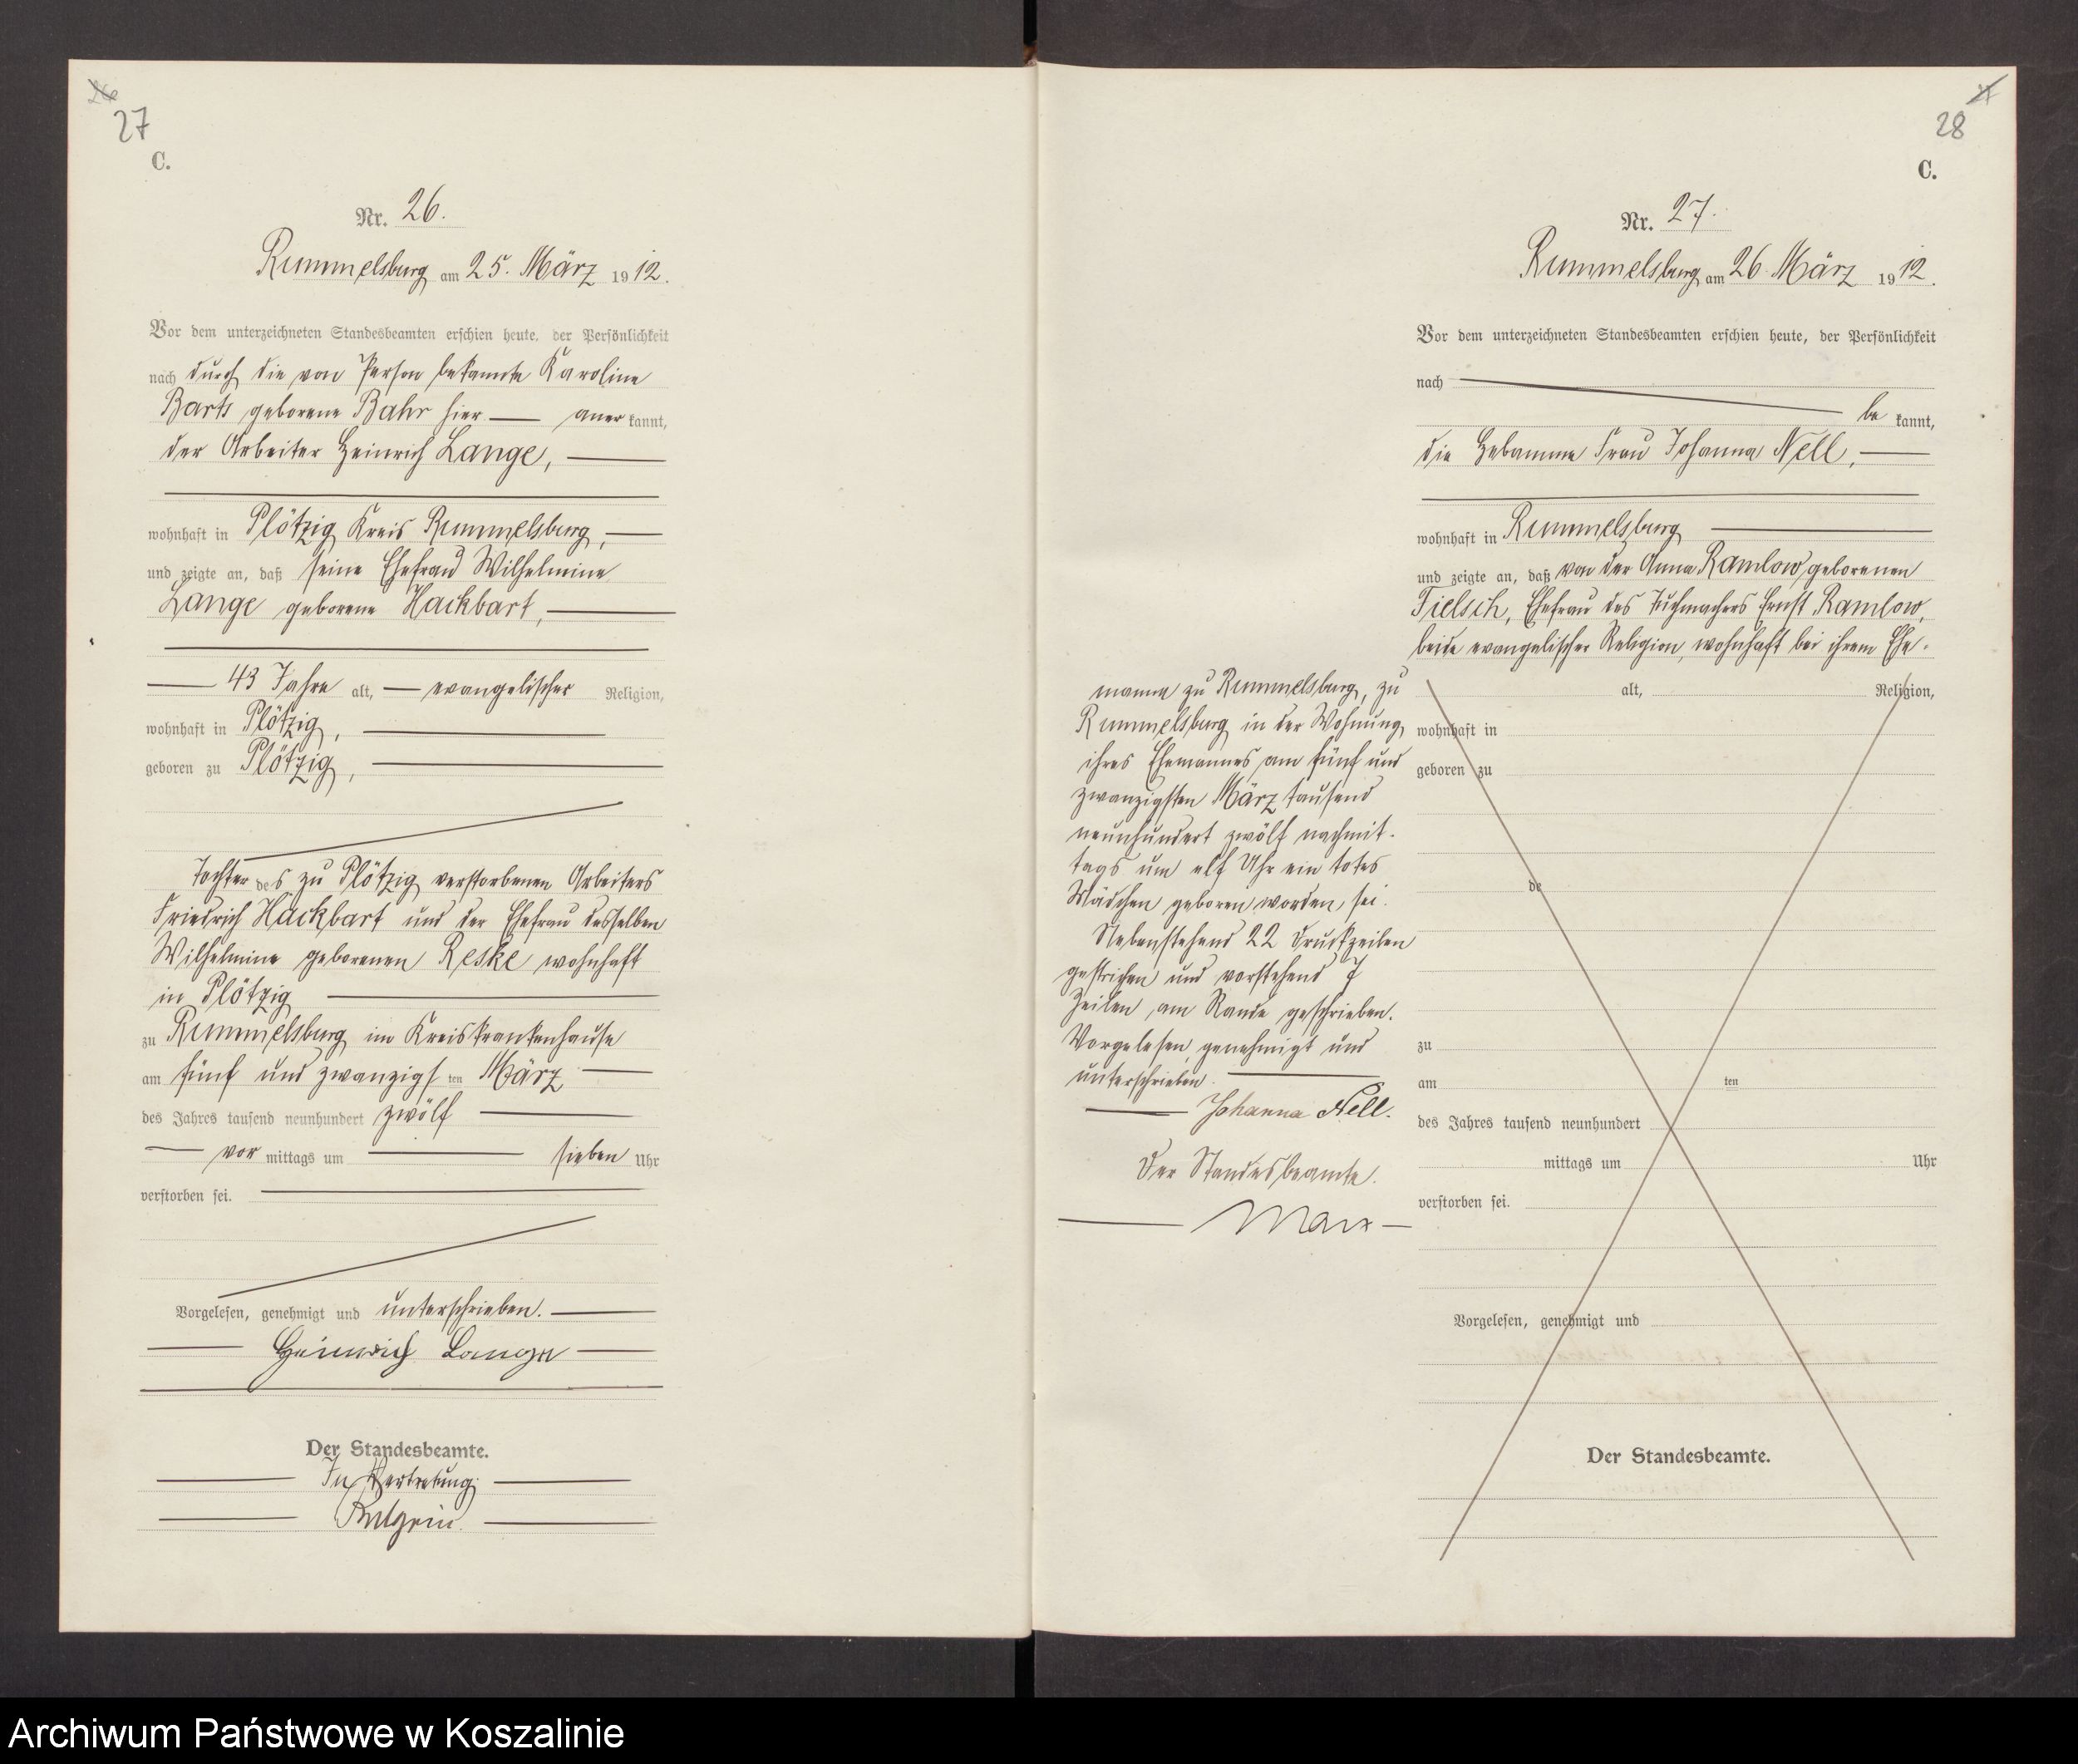 27
C.
Nr. 26.
Rummelsburg am 25. März 1912.
Vor dem unterzeichneten Standesbeamten erschien heute, der Persönlichkeit
nach durch die von Person bekannte Karoline
Barts geborene Bahr hier — anerkannt,
der Arbeiter Heinrich Lange, —
wohnhaft in Plötzig Kreis Rummelsburg, —
und zeigte an, daß seine Ehefrau Wilhelmine
Lange geborene Hackbart, —
— 43 Jahre alt, — evangelischer Religion,
wohnhaft in Plötzig, —
geboren zu Plötzig, —
Tochter des zu Plötzig verstorbenen Arbeiters
Friedrich Hackbart und der Ehefrau desselben
Wilhelmine geborenen Reske wohnhaft
in Plötzig —
zu Rummelsburg im Kreiskrankenhause
am fünf und zwanzigsten März —
des Jahres tausend neunhundert zwölf —
— vor mittags um — sieben Uhr
verstorben sei. —
Vorgelesen, genehmigt und unterschrieben. —
— Heinrich Lange —
Der Standesbeamte.
— In Vertretung. —
28
C.
Nr. 27.
Rummelsburg am 26. März 1912.
Vor dem unterzeichneten Standesbeamten erschien heute, der Persönlichkeit
nach —
be kannt,
die Hebamme Frau Johanna Nell, —
wohnhaft in Rummelsburg —
und zeigte an, daß von der Anna Ramlow geborenen
Tielsch, Ehefrau des Tuchmachers Ernst Ramlow,
beide evangelischer Religion, wohnhaft bei ihrem Ehe-
manne zu Rummelsburg, zu
Rummelsburg in der Wohnung
ihres Ehemannes am fünf und
zwanzigsten März tausend
neunhundert zwölf nachmit-
tags um elf Uhr ein totes
Mädchen geboren worden, sei.
Nebenstehend 22 Druckzeilen
gestrichen und vorstehend 7
Zeilen am Rande geschrieben.
Vorgelesen, genehmigt und
unterschrieben. —
— Johanna Nell.
Der Standesbeamte.
— Marx —
alt, Religion,
wohnhaft in
geboren zu
de
zu
am ten
des Jahres tausend neunhundert
mittags um Uhr
verstorben sei.
Vorgelesen, genehmigt und
Der Standesbeamte.
Archiwum Państwowe w Koszalinie